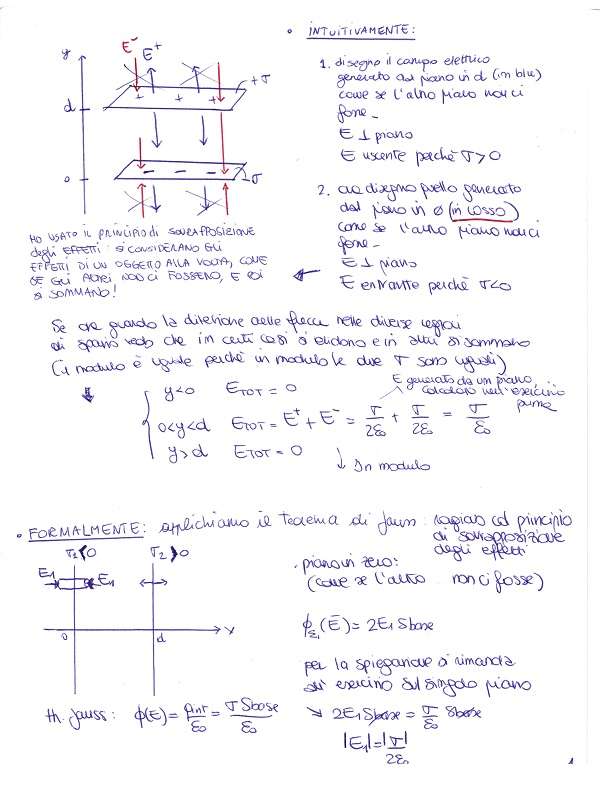 • INTUITIVAMENTE:
y
E⁻
E⁺
+σ
d
+ + +
0
- - -
-σ
1. disegno il campo elettrico
generato dal piano in d (in blu)
come se l'altro piano non ci
fosse -
E ⊥ piano
E uscente perchè σ>0
2. ora disegno quello generato
dal piano in 0 (in rosso)
come se l'altro piano non ci
fosse -
E ⊥ piano
E entrante perchè σ<0
HO USATO IL PRINCIPIO DI SOVRAPPOSIZIONE
degli EFFETTI: SI CONSIDERANO GLI
EFFETTI DI UN OGGETTO ALLA VOLTA, COME
SE GLI ALTRI NON CI FOSSERO, E POI
SI SOMMANO!
Se ora guardo la direzione delle frecce nelle diverse regioni
di spazio vedo che in certi casi si elidono e in altri si sommano
(il modulo è uguale perchè in modulo le due σ sono uguali)
y<0 E_TOT = 0
E generato da un piano,
calcolato nell'esercizio
prima
0<y<d E_TOT = E⁺ + E⁻ = σ/2ε₀ + σ/2ε₀ = σ/ε₀
y>d E_TOT = 0
↓ In modulo
• FORMALMENTE: applichiamo il teorema di Gauss: ragiono col principio
di sovrapposizione
degli effetti
σ₁<0 σ₂>0
E₁ E₁
0 d x
• piano in zero:
(come se l'altro non ci fosse)
φ_Σ₁(E) = 2E₁ Sbase
per la spiegazione si rimanda
all'esercizio sul singolo piano
th. Gauss: φ(E) = Qint/ε₀ = σ Sbase/ε₀
↘ 2E₁ Sbase = σ/ε₀ Sbase
|E₁| = |σ|/2ε₀
1